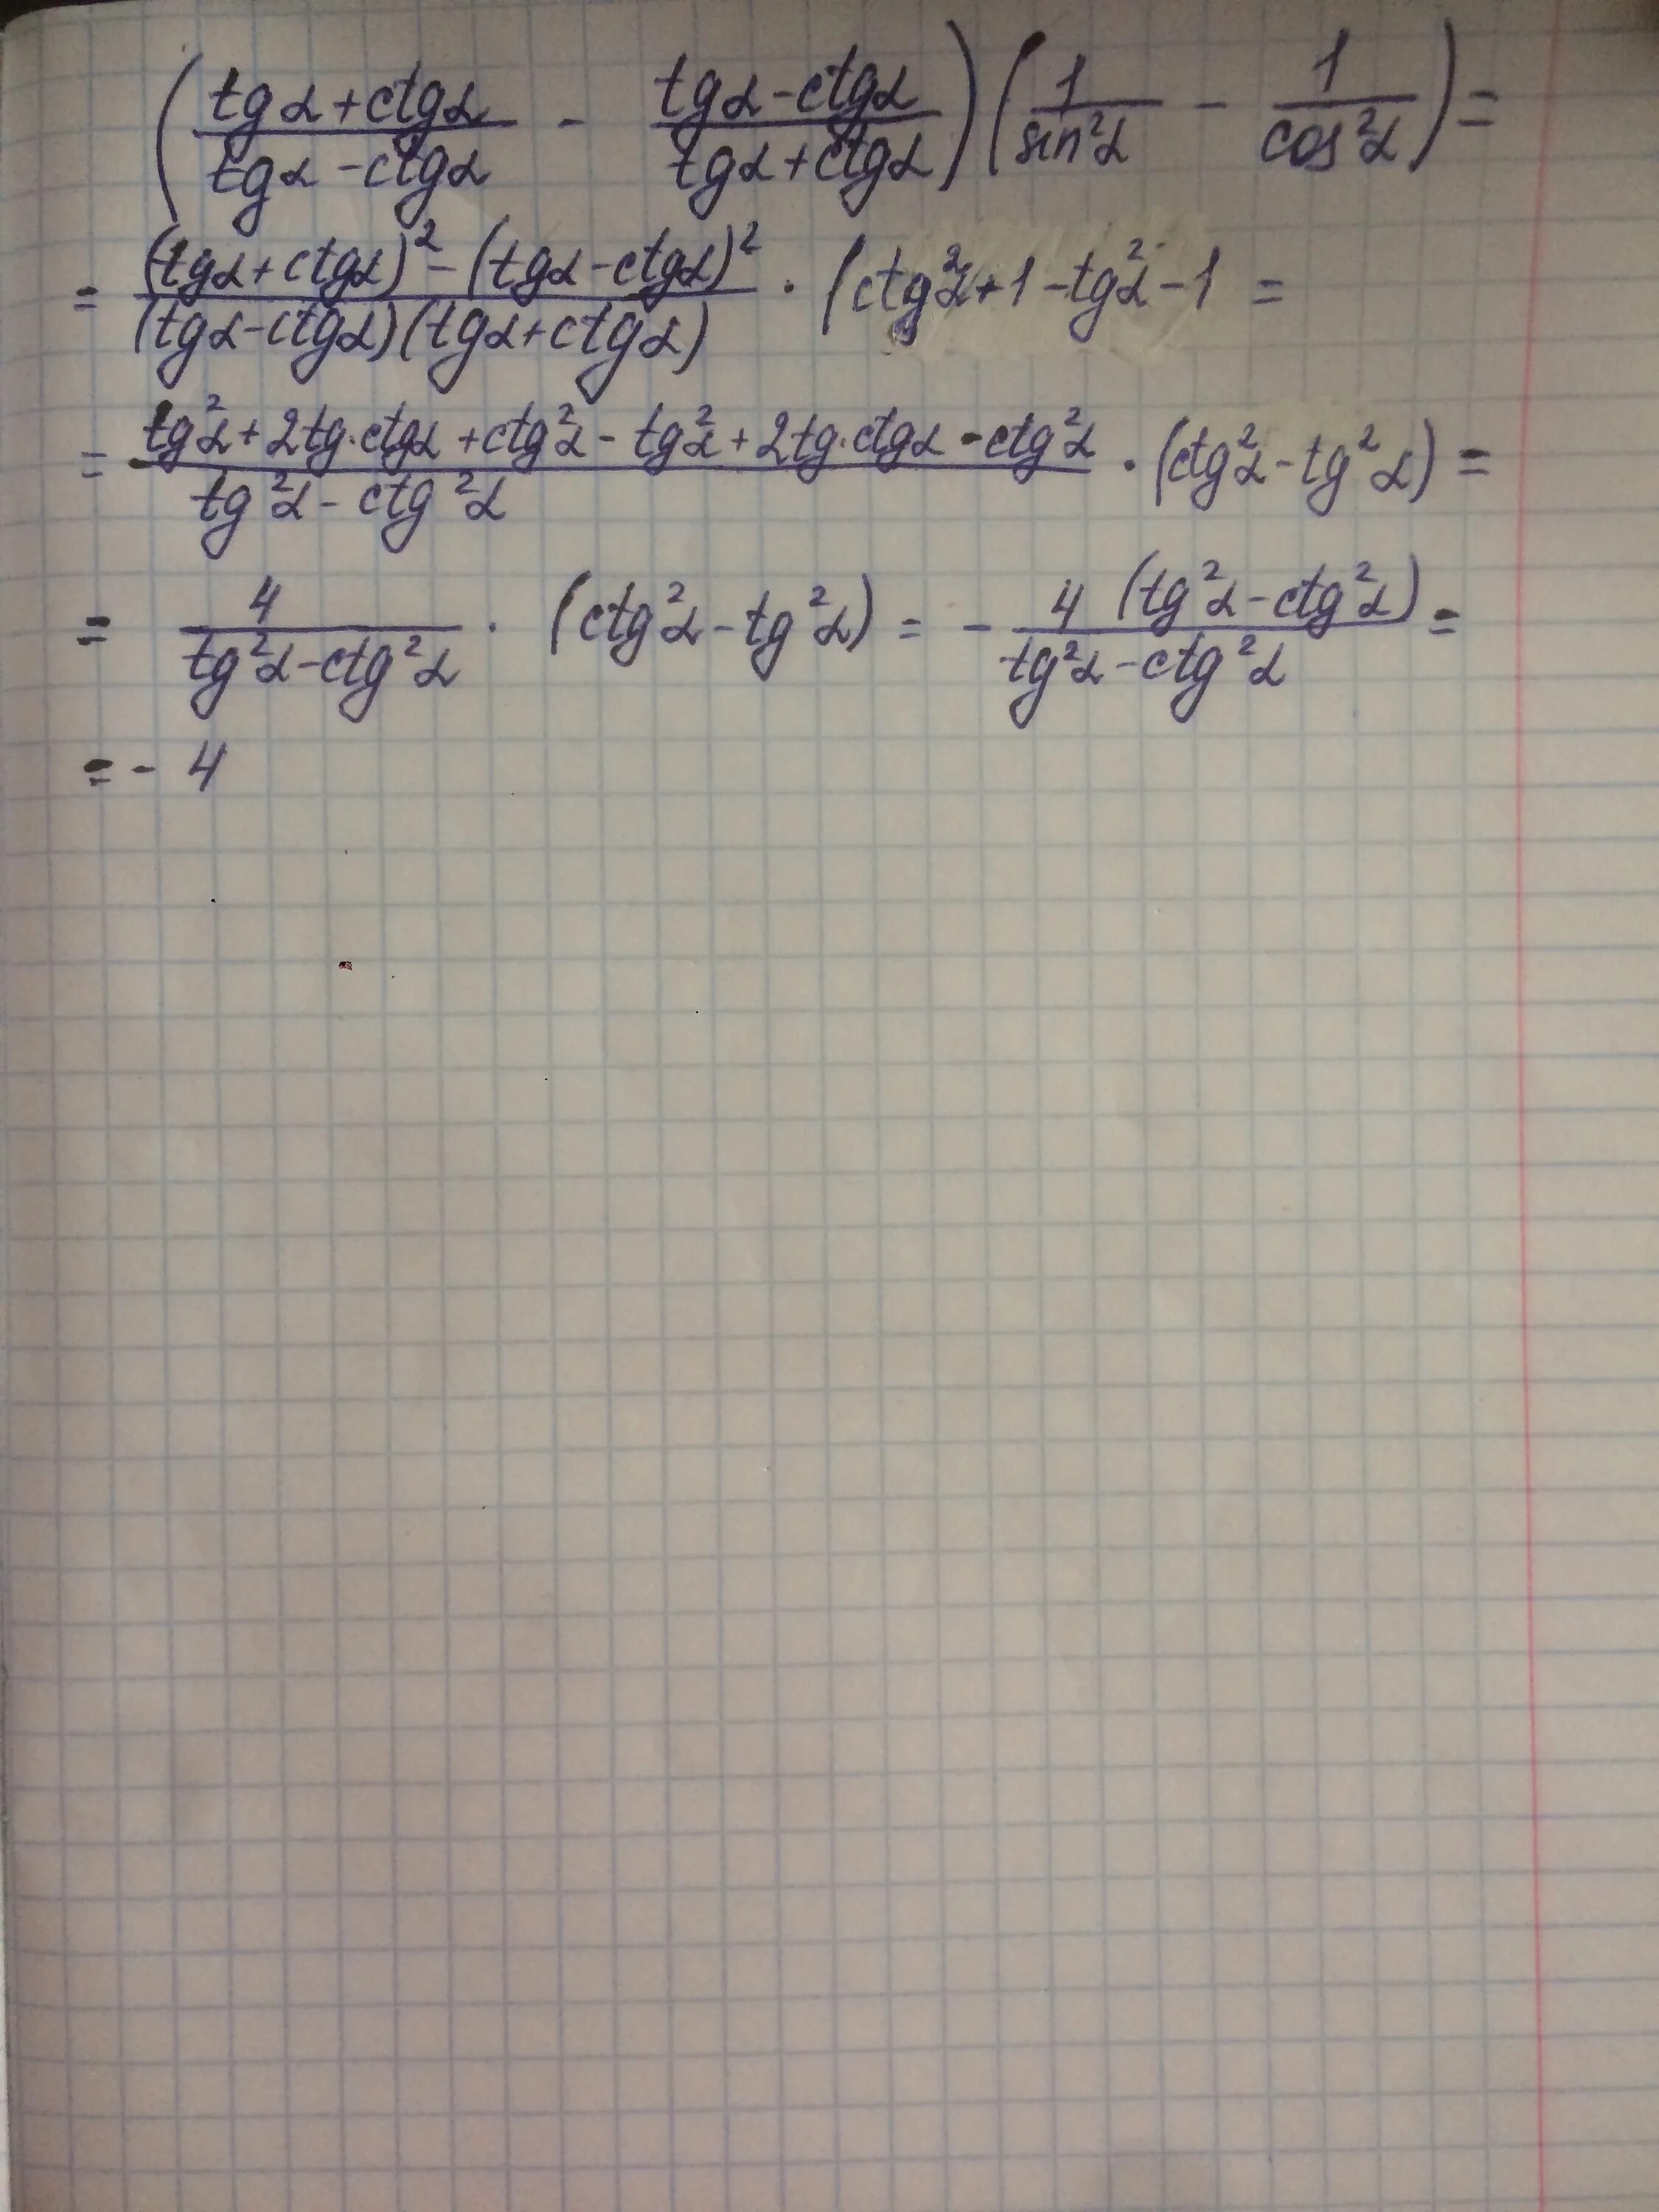 (tgα+ctgα / tgα-ctgα - tgα-ctgα / tgα+ctgα)(1/sin²α - 1/cos²α)=
= (tgα+ctgα)²-(tgα-ctgα)² / (tgα-ctgα)(tgα+ctgα) · (ctg²α+1-tg²α-1 =
= tg²α+2tg·ctgα+ctg²α-tg²α+2tg·ctgα-ctg²α / tg²α-ctg²α · (ctg²α-tg²α)=
= 4 / tg²α-ctg²α · (ctg²α-tg²α)= - 4(tg²α-ctg²α) / tg²α-ctg²α =
=- 4